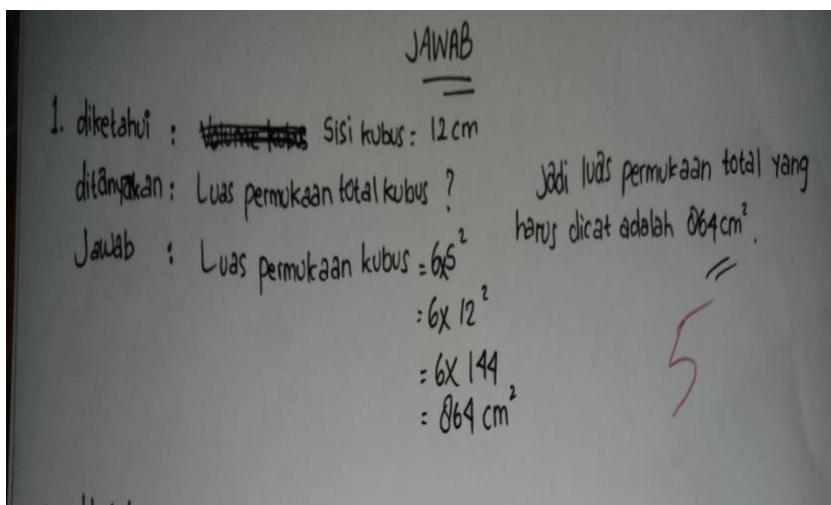 JAWAB
1. diketahui : Sisi kubus = 12 cm
ditanyakan : Luas permukaan total kubus ?
Jawab : Luas permukaan kubus = 6xs²
= 6 x 12²
= 6 x 144
= 864 cm²
Jadi luas permukaan total yang
harus dicat adalah 864 cm².
5